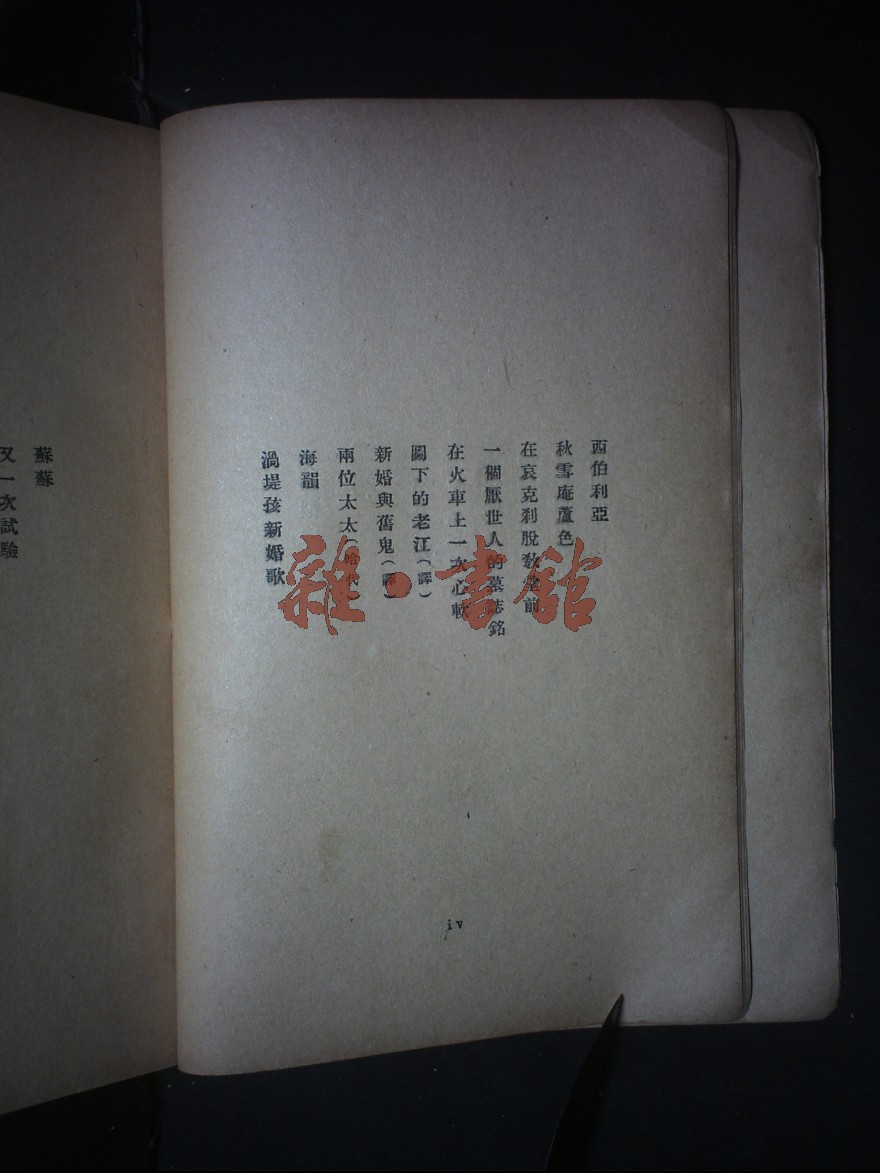 西伯利亞
秋雪庵蘆色
在哀克刹脫教堂前
一個厭世人的墓誌銘
在火車上一次心軟
圖下的老江(譯)
新婚與舊鬼(譯)
兩位太太(哈代)
海韻
渦堤孩新婚歌
蘇蘇
又一次試驗
iv
雜·書館